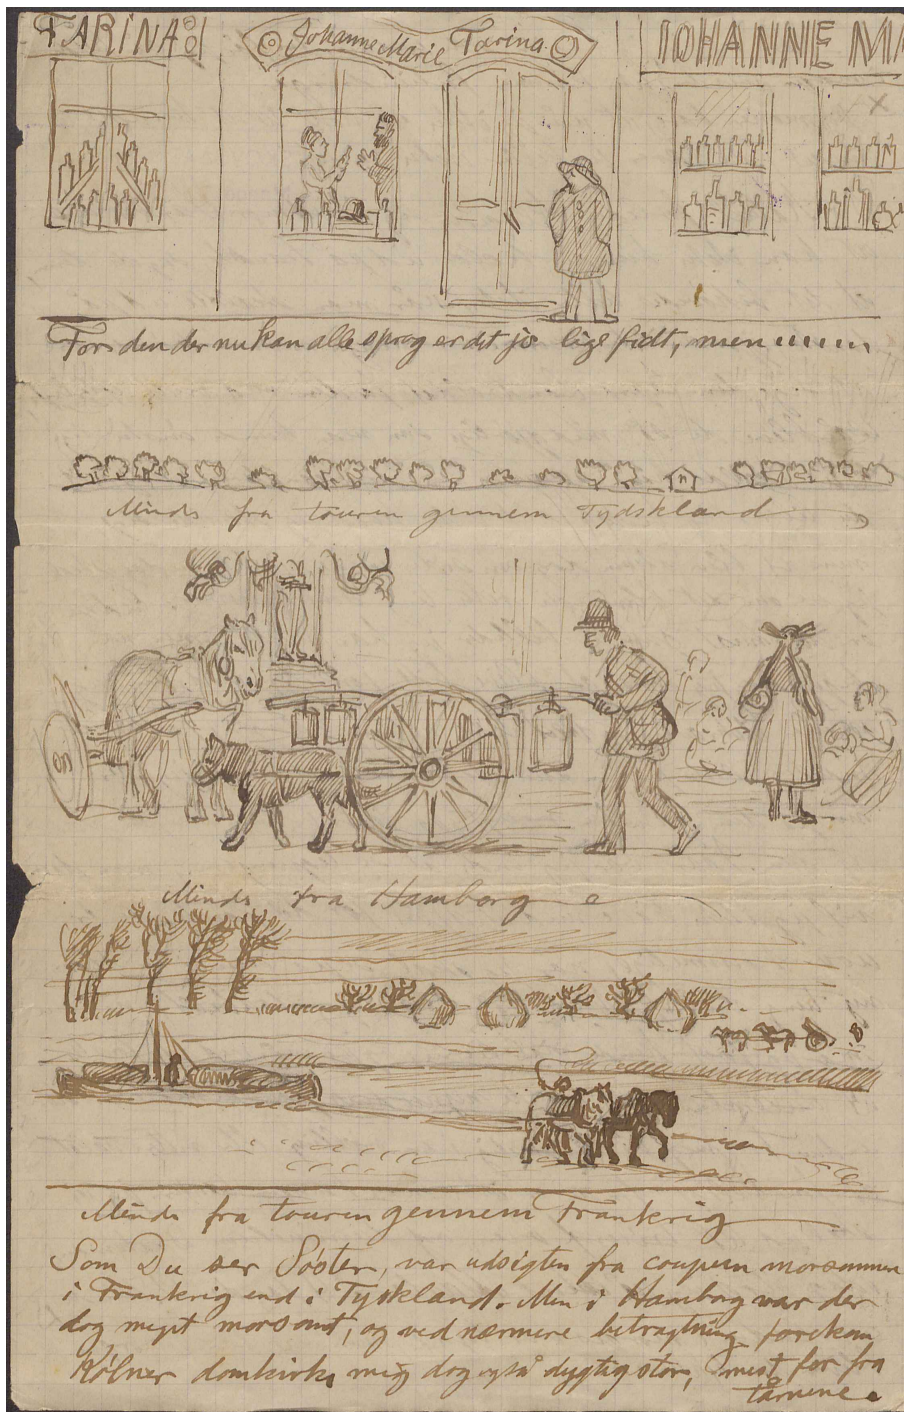 FARINA
Johanne Marie Farina
JOHANNE MA
For den der nu kan alle sprog er det jo lige fidt, men
Minde fra touren gennem Tydskland
Minde fra Hamborg
Minde fra touren gennem Frankrig
Som Du ser Søster, var udsigten fra coupeen morsommere
i Frankrig end i Tyskland. Men i Hamborg var der
dog meget morsomt, og ved nærmere betragtning forekom
Kölner domkirke mig dog også dygtig stor, mest for fra
tårnene.